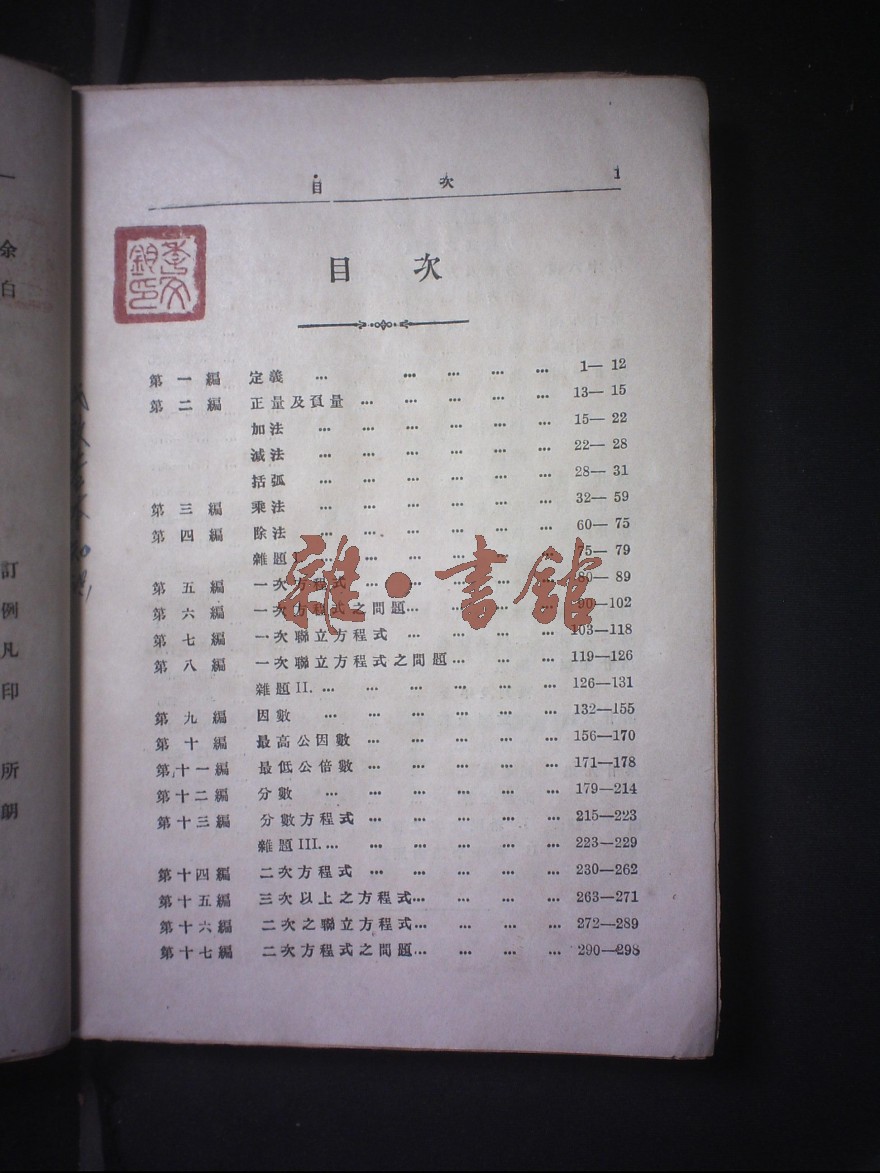 目 次 1
目 次
第一編 定義 … … … … … 1— 12
第二編 正量及頁量 … … … … … 13— 15
加法 … … … … … … 15— 22
減法 … … … … … … 22— 28
括弧 … … … … … … 28— 31
第三編 乘法 … … … … … … 32— 59
第四編 除法 … … … … … … 60— 75
雜題 I. … … … … … 75— 79
第五編 一次方程式 … … … … … 80— 89
第六編 一次方程式之問題… … … … 90—102
第七編 一次聯立方程式 … … … … 103—118
第八編 一次聯立方程式之問題… … … 119—126
雜題 II. … … … … … … 126—131
第九編 因數 … … … … … … 132—155
第十編 最高公因數 … … … … … 156—170
第十一編 最低公倍數 … … … … … 171—178
第十二編 分數 … … … … … … 179—214
第十三編 分數方程式 … … … … … 215—223
雜題 III.… … … … … … 223—229
第十四編 二次方程式 … … … … … 230—262
第十五編 三次以上之方程式… … … … 263—271
第十六編 二次之聯立方程式… … … … 272—289
第十七編 二次方程式之問題… … … … 290—298
雜·書館
余
白
訂
例
凡
印
所
朗